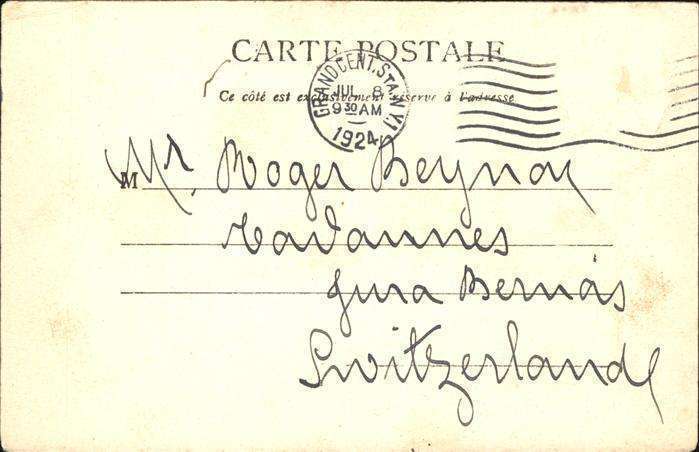 CARTE POSTALE
Ce côté est exclusivement réservé à l'adresse
GRAND CENT. STA. N.Y.
JUL 8
9 30 AM
1924
M Mr. Roger
Tavannes
Jura Bernois
Switzerland